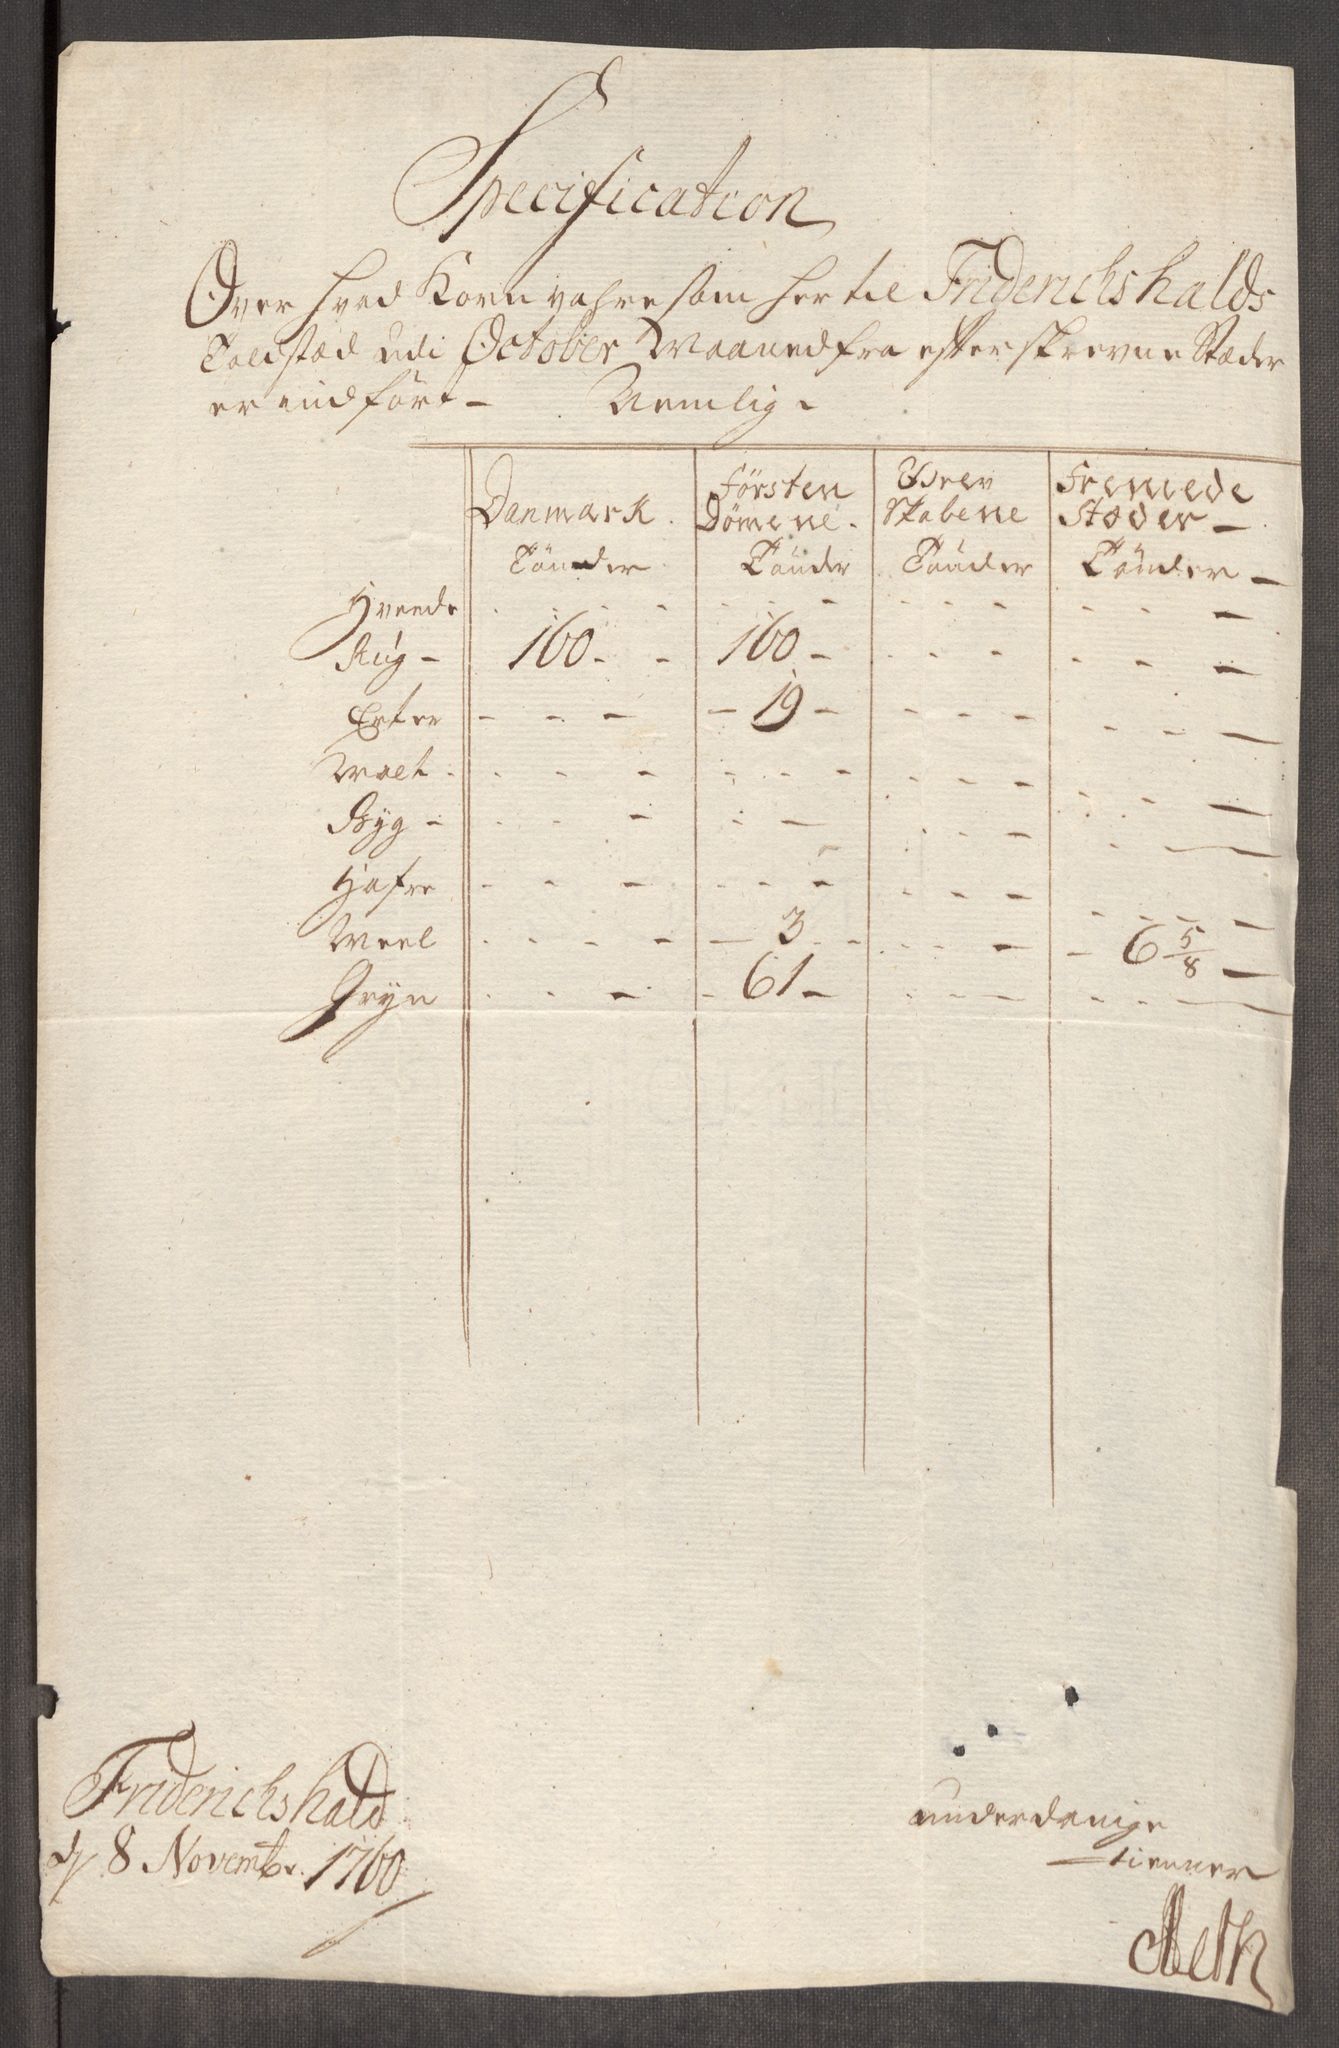 Specification
Over hvad Korn vahre som her til Friderichshalds
Toldstæd udi October Maaned fra efterskrevne Stæder
er indført – Nemlig.
Danmark. Försten Dömene. Grev Skabene Fremede Stæder –
Tönder Tönder Tönder Tönder –
Hveede - - - - - - - - - - - –
Rug – 160 - - 160 – - - - - - –
Erter - - - – 19 – - - - - - –
Malt - - - - - - - - - - - - –
Byg - - - - - - – - - - - - –
Hafre - - - - - - - - - - - - –
Meel - - - - – 3 - - - - - – 6 5/8 –
Gryn - - - - 61 – - - - - - - –
Friderichshald
d 8 Novembr. 1760
underdanige
tienner